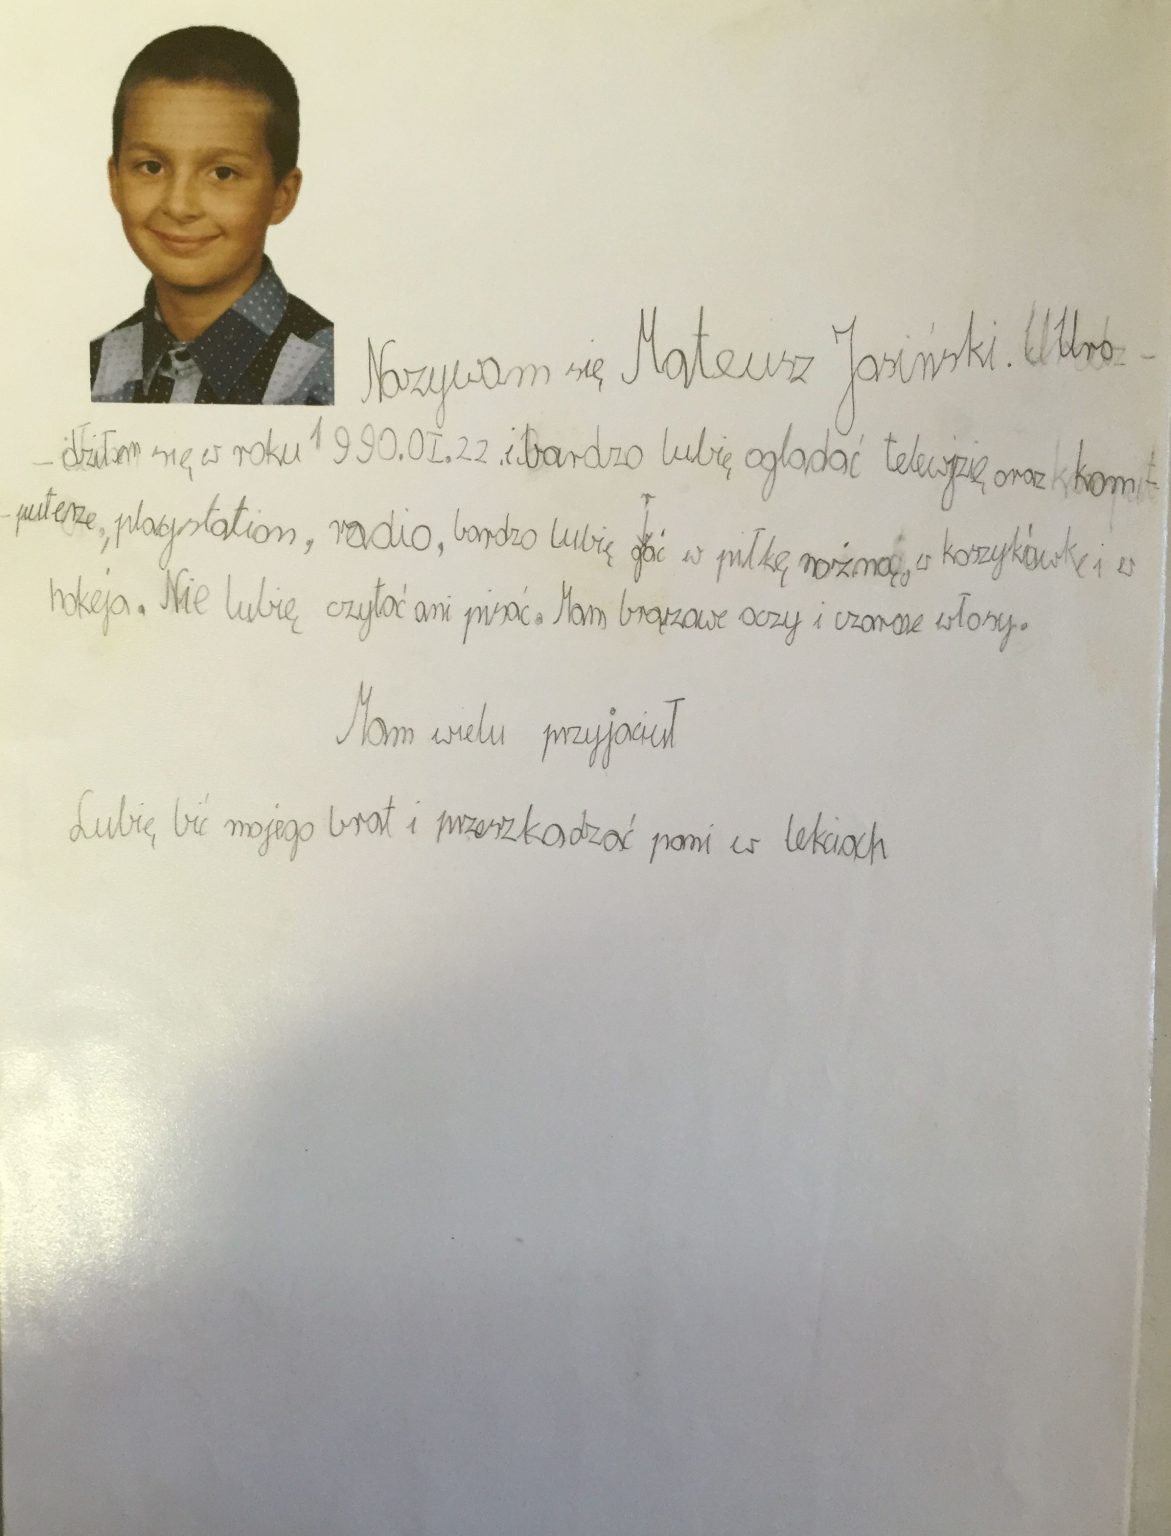 Nazywam się Mateusz Jasiński. Uro-
-dziłem się w roku 1990.01.22 i bardzo lubię ogladać telewjzię oraz kom-
-puterze, playstation, radio, bardzo lubię grać w piłkę nożną, w koszykówkę i w
hokeja. Nie lubię czytać ani pisać. Mam brązowe oczy i czarne włosy.
Mam wielu przyjaciuł
Lubię bić mojego brat i przeszkadzać pani w lekciach